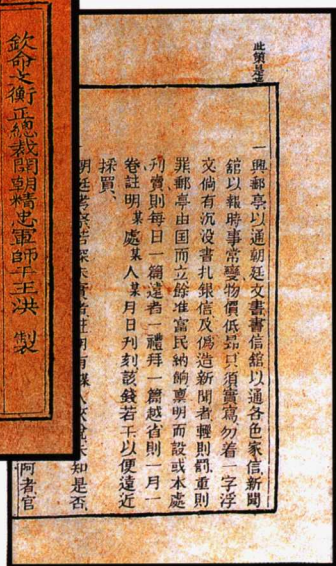 欽命文衡正總裁開朝精忠軍師干王洪 製
此策是也
一興郵亭以通朝廷文書書信舘以通各色家信新聞
舘以報時事常變物價低昂只須實寫勿着一字浮
文倘有沉没書扎銀信及偽造新聞者輕則罰重則
罪郵亭由囯而立餘准富民納餉禀明而設或本處
刋賣則每日一篇遠者一禮拜一篇越省則一月一
卷註明某處某人某月日刋刻該錢若干以便遠近
採買
朝廷考察若探未實者註明有某人來說未知是否
阿者官